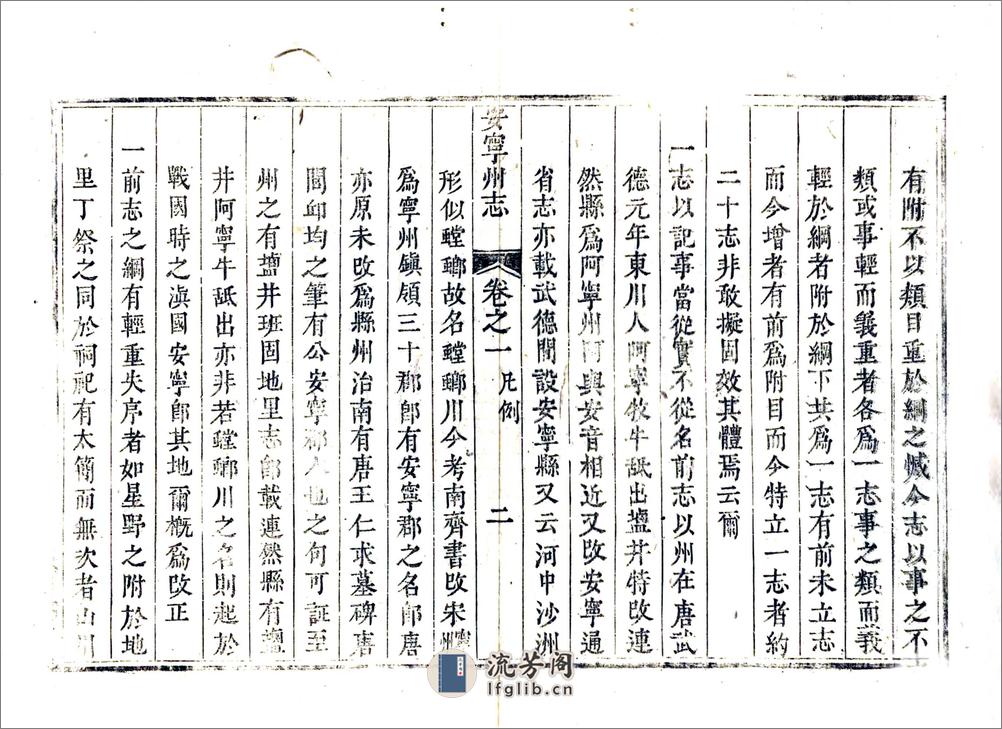 有附不以類目重於綱之憾今志以事之不
類或事輕而義重者各為一志事之類而義
輕於綱者附於綱下共為一志有前未立志
而今增者有前為附目而今特立一志者約
二十志非敢擬固效其體焉云爾
一志以記事當從實不從名前志以州在唐武
德元年東川人阿寧牧牛舐出鹽井特改連
然縣為阿寧州阿與安音相近又改安寧通
省志亦載武德間設安寧縣又云河中沙洲
安寧州志 卷之一 凡例 二
形似螳螂故名螳螂川今考南齊書改宋寧州
為寧州鎮領三十郡郎有安寧郡之名郎唐
亦原未改為縣州治南有唐王仁求墓碑唐
閭邱均之筆有公安寧郡人也之句可証至
州之有鹽井班固地里志郎載連然縣有鹽
井阿寧牛舐出亦非若螳螂川之名則起於
戰國時之滇國安寧郎其地爾概為改正
一前志之綱有輕重失序者如星野之附於地
里丁祭之同於祠祀有太簡而無次者山川
流芳閣
lfglib.cn